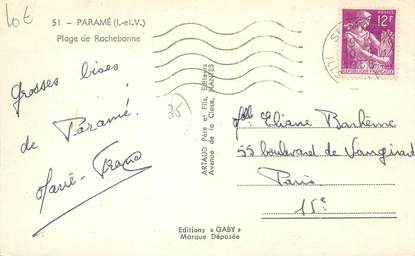 10€
51 - PARAMÉ (I.-et-V.)
Plage de Rochebonne
12F
Grosses bises
de Paramé!
Marie-France
35
ARTAUD Père et Fils, Editeurs
Avenue de la Close, NANTES
Mlle Eliane Barhème
55 boulevard de Vaugirard
Paris
15e
Editions « GABY »
Marque Déposée